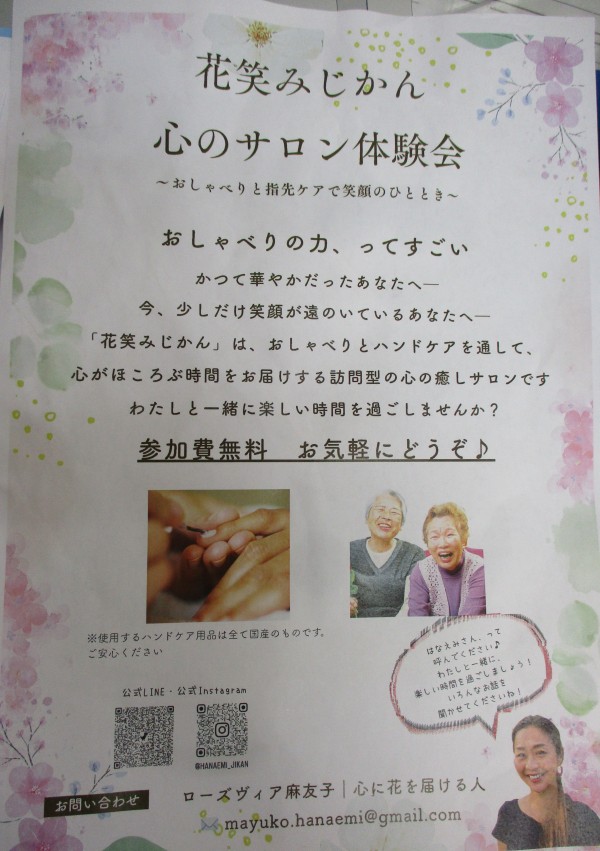 花笑みじかん
心のサロン体験会
～おしゃべりと指先ケアで笑顔のひととき～
おしゃべりの力、ってすごい
かつて華やかだったあなたへ―
今、少しだけ笑顔が遠のいているあなたへ―
「花笑みじかん」は、おしゃべりとハンドケアを通して、
心がほころぶ時間をお届けする訪問型の心の癒しサロンです
わたしと一緒に楽しい時間を過ごしませんか？
参加費無料　お気軽にどうぞ♪
※使用するハンドケア用品は全て国産のものです。
ご安心ください
はなえみさん、って
呼んでください♪
わたしと一緒に、
楽しい時間を過ごしましょう！
いろんなお話を
聞かせてくださいね！
公式LINE・公式Instagram
@HANAEMI_JIKAN
お問い合わせ
ローズヴィア麻友子｜心に花を届ける人
mayuko.hanaemi@gmail.com